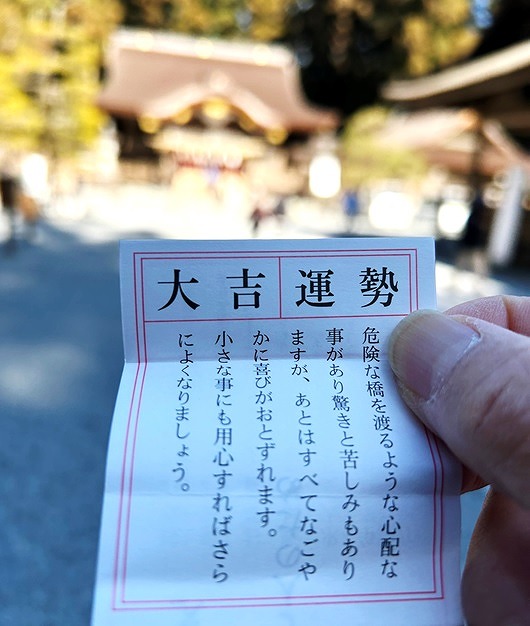 勢運
吉大
危険な橋を渡るような心配な
事があり驚きと苦しみもあり
ますが、あとはすべてなごや
かに喜びがおとずれます。
小さな事にも用心すればさら
によくなりましょう。